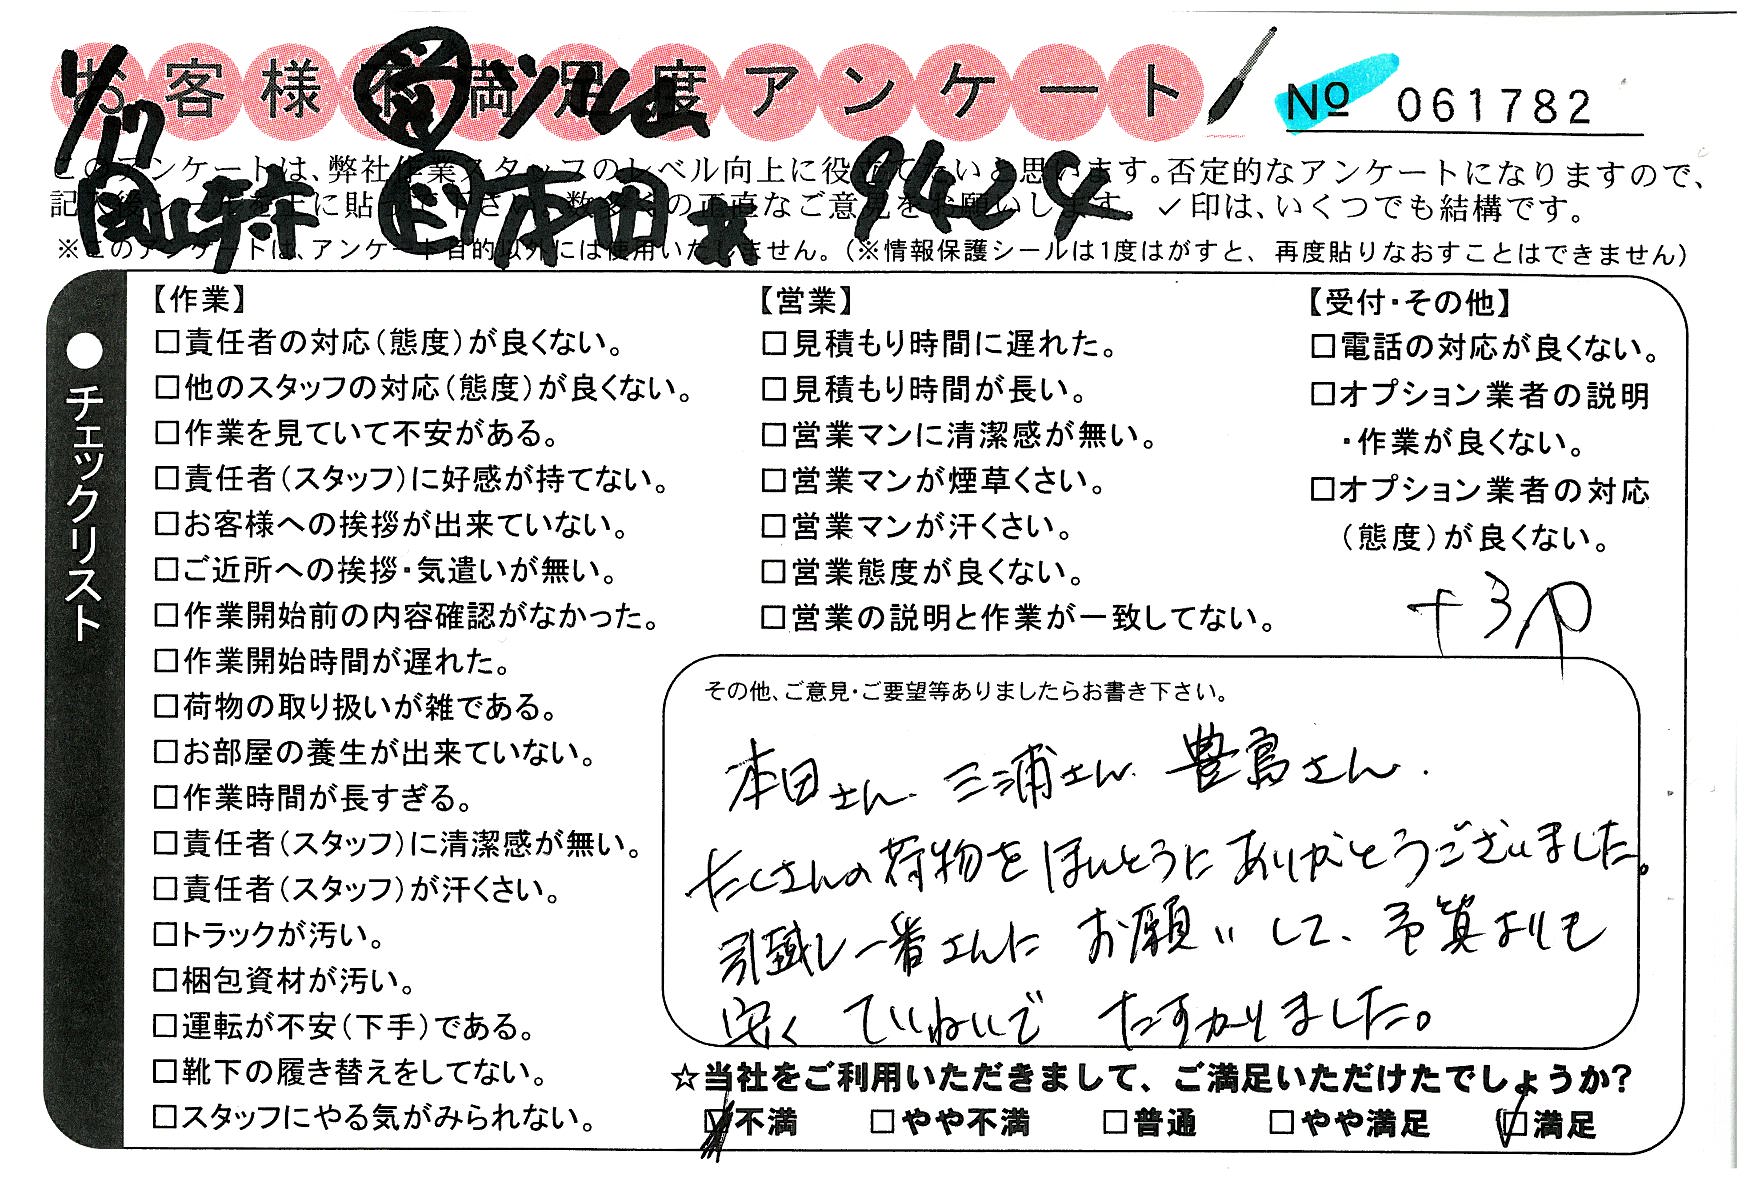 お客様不満足度アンケート
№ 061782
1/17
このアンケートは、弊社作業スタッフのレベル向上に役立てたいと思います。否定的なアンケートになりますので、
記入後シールを上に貼って下さい。数多くの正直なご意見をお願いします。✓印は、いくつでも結構です。
本田
※このアンケートは、アンケート目的以外には使用いたしません。(※情報保護シールは1度はがすと、再度貼りなおすことはできません)
●チェックリスト
【作業】
□責任者の対応(態度)が良くない。
□他のスタッフの対応(態度)が良くない。
□作業を見ていて不安がある。
□責任者(スタッフ)に好感が持てない。
□お客様への挨拶が出来ていない。
□ご近所への挨拶・気遣いが無い。
□作業開始前の内容確認がなかった。
□作業開始時間が遅れた。
□荷物の取り扱いが雑である。
□お部屋の養生が出来ていない。
□作業時間が長すぎる。
□責任者(スタッフ)に清潔感が無い。
□責任者(スタッフ)が汗くさい。
□トラックが汚い。
□梱包資材が汚い。
□運転が不安(下手)である。
□靴下の履き替えをしてない。
□スタッフにやる気がみられない。
【営業】
□見積もり時間に遅れた。
□見積もり時間が長い。
□営業マンに清潔感が無い。
□営業マンが煙草くさい。
□営業マンが汗くさい。
□営業態度が良くない。
□営業の説明と作業が一致してない。
【受付・その他】
□電話の対応が良くない。
□オプション業者の説明
・作業が良くない。
□オプション業者の対応
(態度)が良くない。
+3P
その他、ご意見・ご要望等ありましたらお書き下さい。
本田さん、三浦さん、豊島さん.
たくさんの荷物をほんとうにありがとうございました。
引越し一番さんにお願いして、予算よりも
安く ていねいで たすかりました。
☆当社をご利用いただきまして、ご満足いただけたでしょうか?
☑不満 □やや不満 □普通 □やや満足 ☑満足